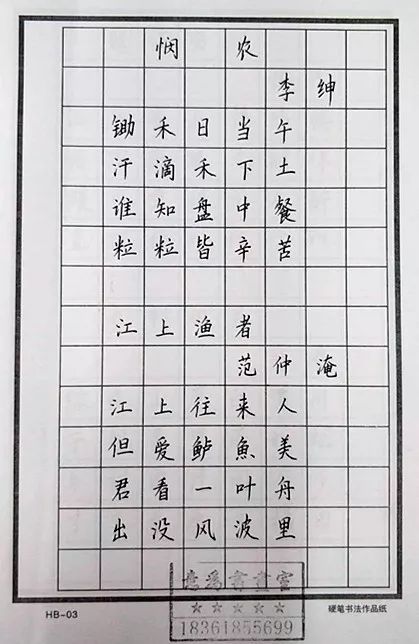 悯 农
李 绅
锄 禾 日 当 午
汗 滴 禾 下 土
谁 知 盘 中 餐
粒 粒 皆 辛 苦
江 上 渔 者
范 仲 淹
江 上 往 来 人
但 爱 鲈 魚 美
君 看 一 叶 舟
出 没 风 波 里
意为書畫室
☆☆☆☆☆
18361855699
HB-03
硬笔书法作品纸